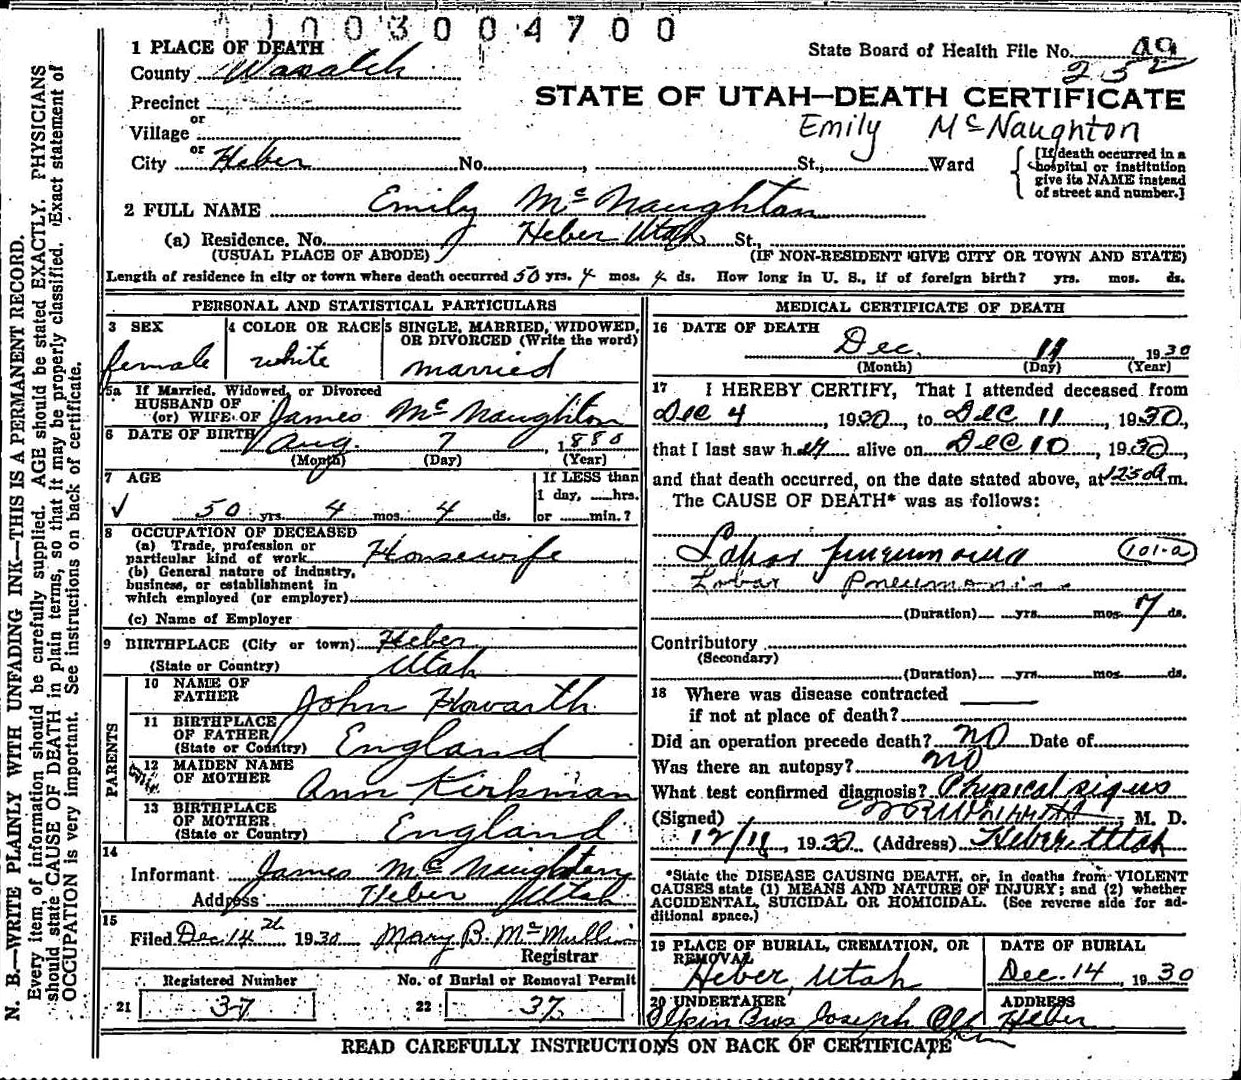 1003004700
1 PLACE OF DEATH
State Board of Health File No. 49
County Wasatch
252
Precinct
STATE OF UTAH—DEATH CERTIFICATE
or
Village
Emily McNaughton
or
City Heber No. , St., Ward
[If death occurred in a hospital or institution give its NAME instead of street and number.]
2 FULL NAME Emily McNaughton
(a) Residence. No. Heber Utah St.,
(USUAL PLACE OF ABODE) (IF NON-RESIDENT GIVE CITY OR TOWN AND STATE)
Length of residence in city or town where death occurred 50 yrs. 4 mos. 4 ds. How long in U. S., if of foreign birth? yrs. mos. ds.
PERSONAL AND STATISTICAL PARTICULARS
3 SEX
female
4 COLOR OR RACE
white
5 SINGLE, MARRIED, WIDOWED,
OR DIVORCED (Write the word)
married
5a If Married, Widowed, or Divorced
HUSBAND OF
(or) WIFE OF James McNaughton
6 DATE OF BIRTH Aug. 7, 1880
(Month) (Day) (Year)
7 AGE
If LESS than
1 day, hrs.
50 yrs. 4 mos. 4 ds. or min.?
8 OCCUPATION OF DECEASED
(a) Trade, profession or
particular kind of work Housewife
(b) General nature of industry,
business, or establishment in
which employed (or employer)
(c) Name of Employer
9 BIRTHPLACE (City or town) Heber
(State or Country) Utah
PARENTS
10 NAME OF
FATHER John Howarth
11 BIRTHPLACE
OF FATHER
(State or Country) England
12 MAIDEN NAME
OF MOTHER Ann Kirkman
13 BIRTHPLACE
OF MOTHER
(State or Country) England
14
Informant James McNaughton
Address Heber Utah
15
Filed Dec. 14 1930 Mary B. McMullin
Registrar
Registered Number No. of Burial or Removal Permit
21 37 22 37
MEDICAL CERTIFICATE OF DEATH
16 DATE OF DEATH
Dec. 11 1930
(Month) (Day) (Year)
17 I HEREBY CERTIFY, That I attended deceased from
Dec 4, 1930, to Dec 11, 1930,
that I last saw her alive on Dec 10, 1930,
and that death occurred, on the date stated above, at 1250 a m.
The CAUSE OF DEATH* was as follows:
Lobar pneumonia 101-a
Lobar Pneumonia
(Duration) yrs. mos. 7 ds.
Contributory
(Secondary)
(Duration) yrs. mos. ds.
18 Where was disease contracted
if not at place of death?
Did an operation precede death? NO Date of
Was there an autopsy? NO
What test confirmed diagnosis? Physical signs
(Signed) , M. D.
12/11, 1930 (Address) Heber, Utah
*State the DISEASE CAUSING DEATH, or, in deaths from VIOLENT
CAUSES state (1) MEANS AND NATURE OF INJURY; and (2) whether
ACCIDENTAL, SUICIDAL OR HOMICIDAL. (See reverse side for ad-
ditional space.)
19 PLACE OF BURIAL, CREMATION, OR
REMOVAL
Heber, Utah
DATE OF BURIAL
Dec. 14, 1930
20 UNDERTAKER
Olpin Bros Joseph Olpin
ADDRESS
Heber
READ CAREFULLY INSTRUCTIONS ON BACK OF CERTIFICATE
N. B.—WRITE PLAINLY WITH UNFADING INK—THIS IS A PERMANENT RECORD.
Every item of information should be carefully supplied. AGE should be stated EXACTLY. PHYSICIANS
should state CAUSE OF DEATH in plain terms, so that it may be properly classified. Exact statement of
OCCUPATION is very important. See instructions on back of certificate.